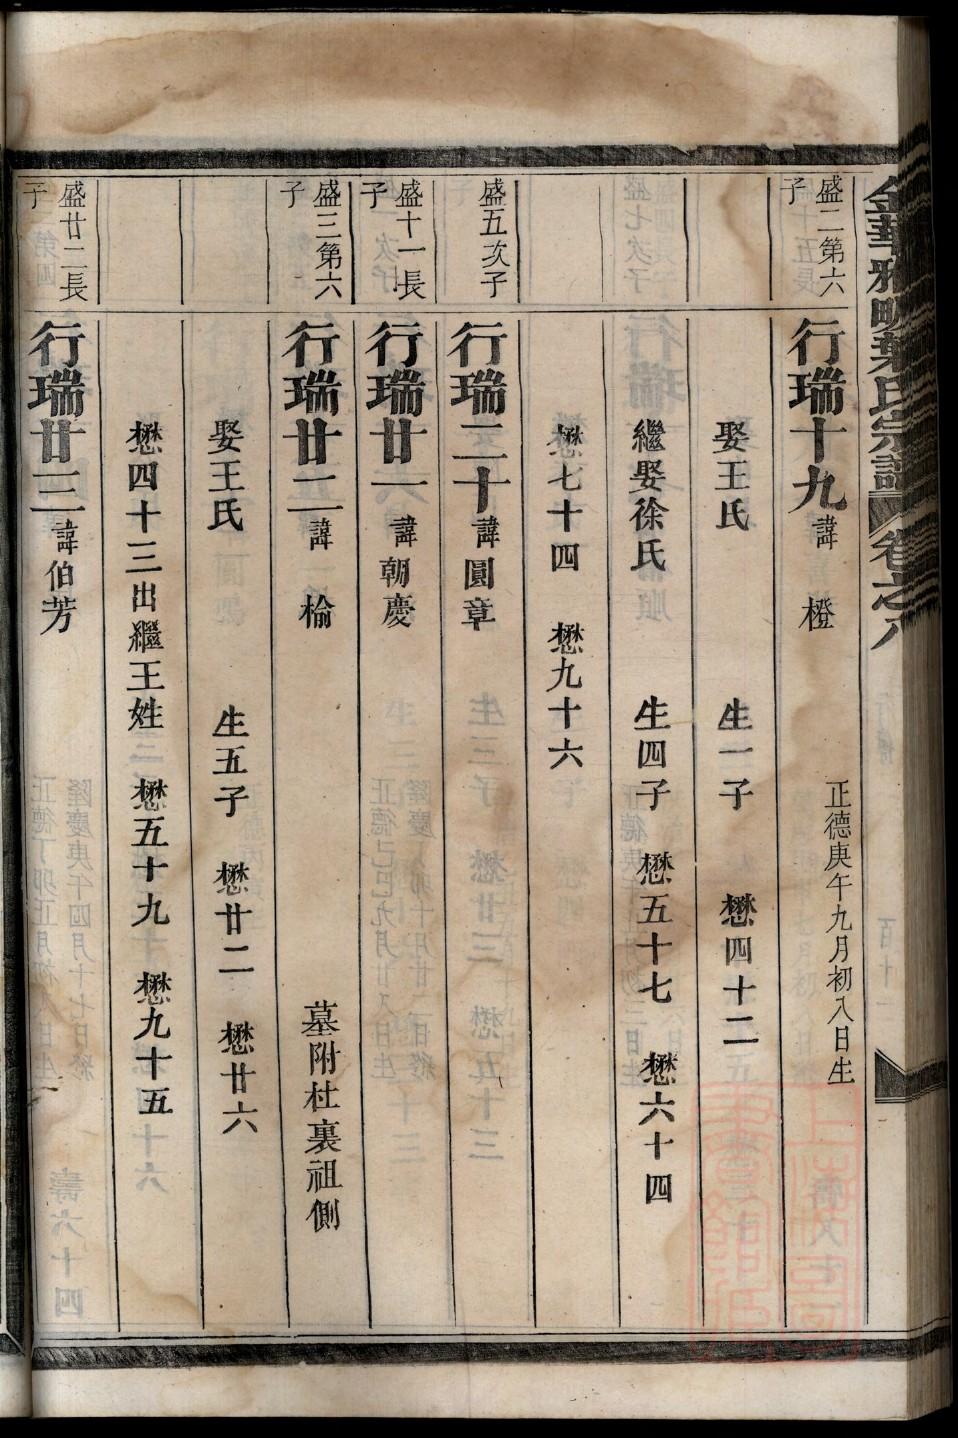 金華雅畈葉氏宗譜 卷之八
盛二第六子
行瑞十九 諱橙 正德庚午九月初八日生
娶王氏 生一子 懋四十二
繼娶徐氏 生四子 懋五十七 懋六十四
懋七十四 懋九十六
盛五次子
行瑞二十 諱圓章
盛十一長子
行瑞廿一 諱朝慶
盛三第六子
行瑞廿二 諱榆 墓附杜裏祖側
娶王氏 生五子 懋廿二 懋廿六
懋四十三出繼王姓 懋五十九 懋九十五
盛廿二長子
行瑞廿三 諱伯芳